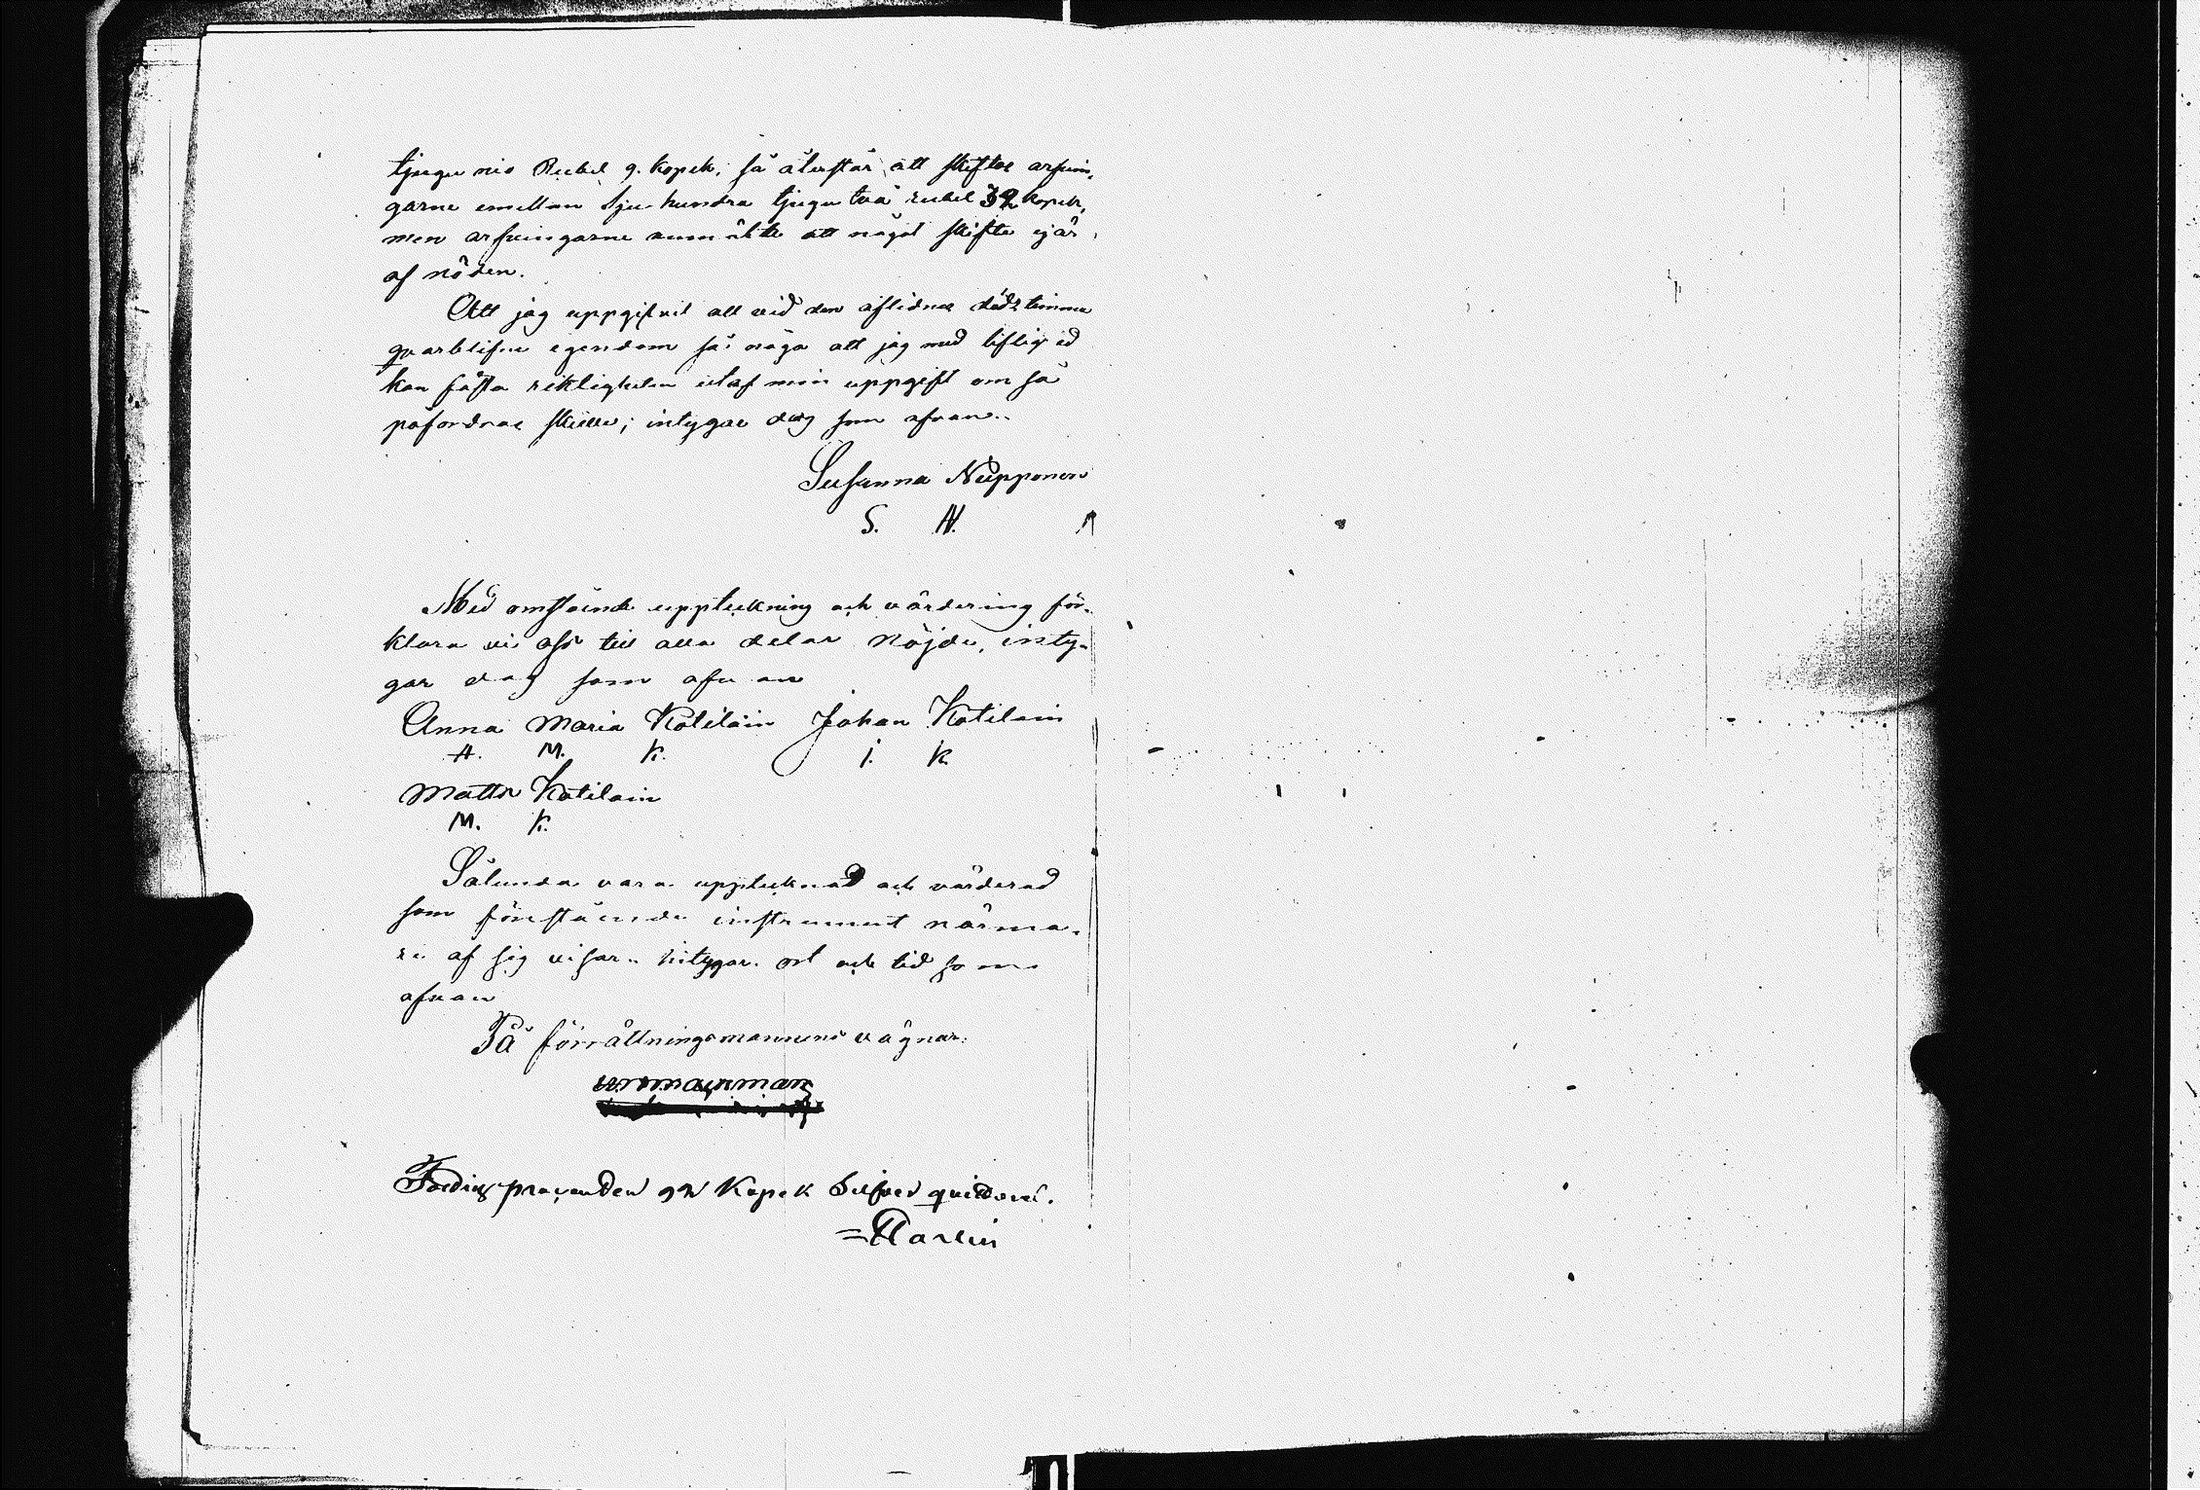 tjugu nio Rubel 9. kopek, så återstår att skiftas arfvin,
garne emellan sju hundra tjugu två rubel 32 kopek,
men arfvingarne anmälde att något skifte ej är
af nöden.
Att jag uppgifvit all vid den aflidnes dödstimma
qvarblifne egendom så noga att jag med liflig ed
kan fästa riktigheten utaf min uppgift om så
påfordras skulle; intygar dag som ofvan.
Susanna Nupponen
S. N.
Med omstående uppteckning och värdering för-
klara vi oss till alla delar nöjde, inty-
gar dag som ofvan
Anna Maria Kotilain Johan Kotilain
A. M. K. J. K.
Matts Kotilain
M. K.
Sålunda vara upptecknad och värderad
som förestående instrument närma-
re af sig visar intygar ort och tid som
ofvan
På förrättningsmannens vägnar:
Fattigprocenden 92 Kopek Silfver quitteras.